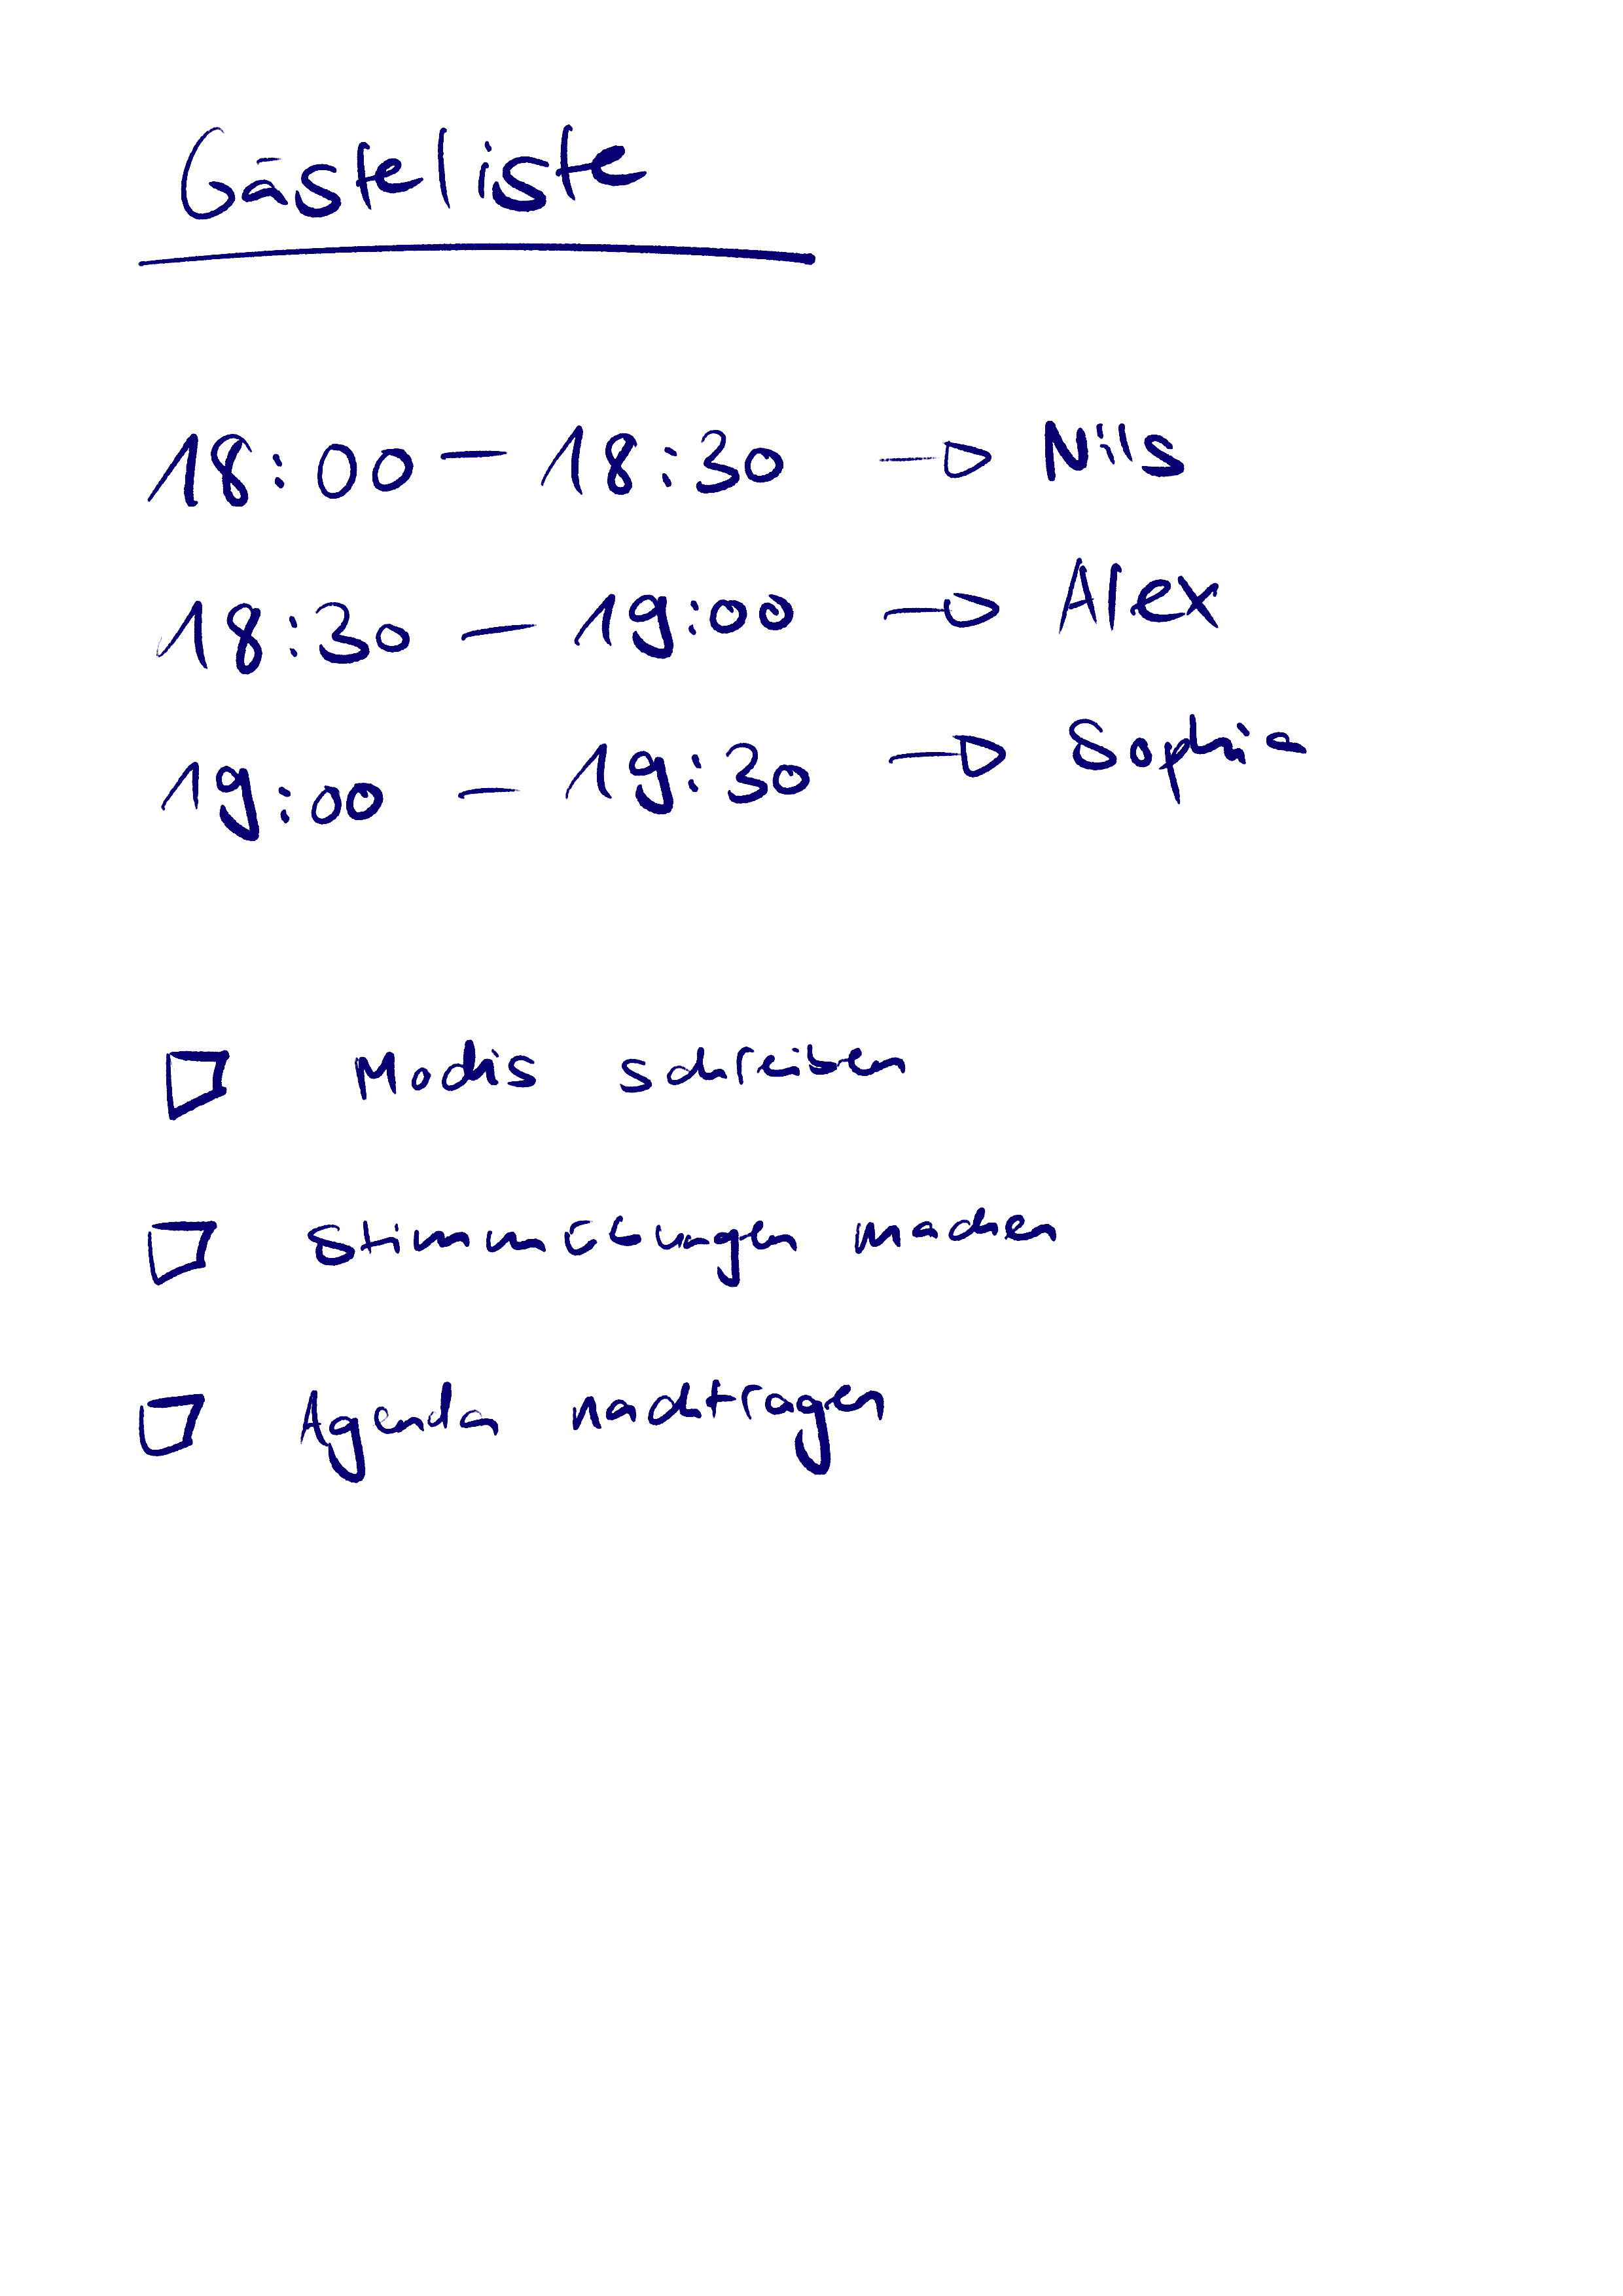 Gästeliste
18:00 – 18:30 → Nils
18:30 – 19:00 → Alex
19:00 – 19:30 → Sophia
☐ Modis schreiben
☐ Stimmübungen machen
☐ Agenda nachtragen